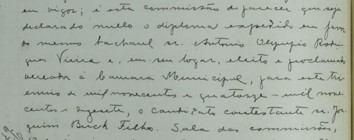 em vigor; é esta commissão de parecer que seja
declarado nullo o diploma expedido em favor
do mesmo bacharel sr. Antonio Olympio Rodri
gues Vieira e, em seu logar, eleito e proclamado
vereador á Camara Municipal, para este tri
ennio de mil novecentos e quatorze - mil nove
centos e dezeseis, o candidato contestante sr. Joa
quim Birck Filho. Sala das commissões,